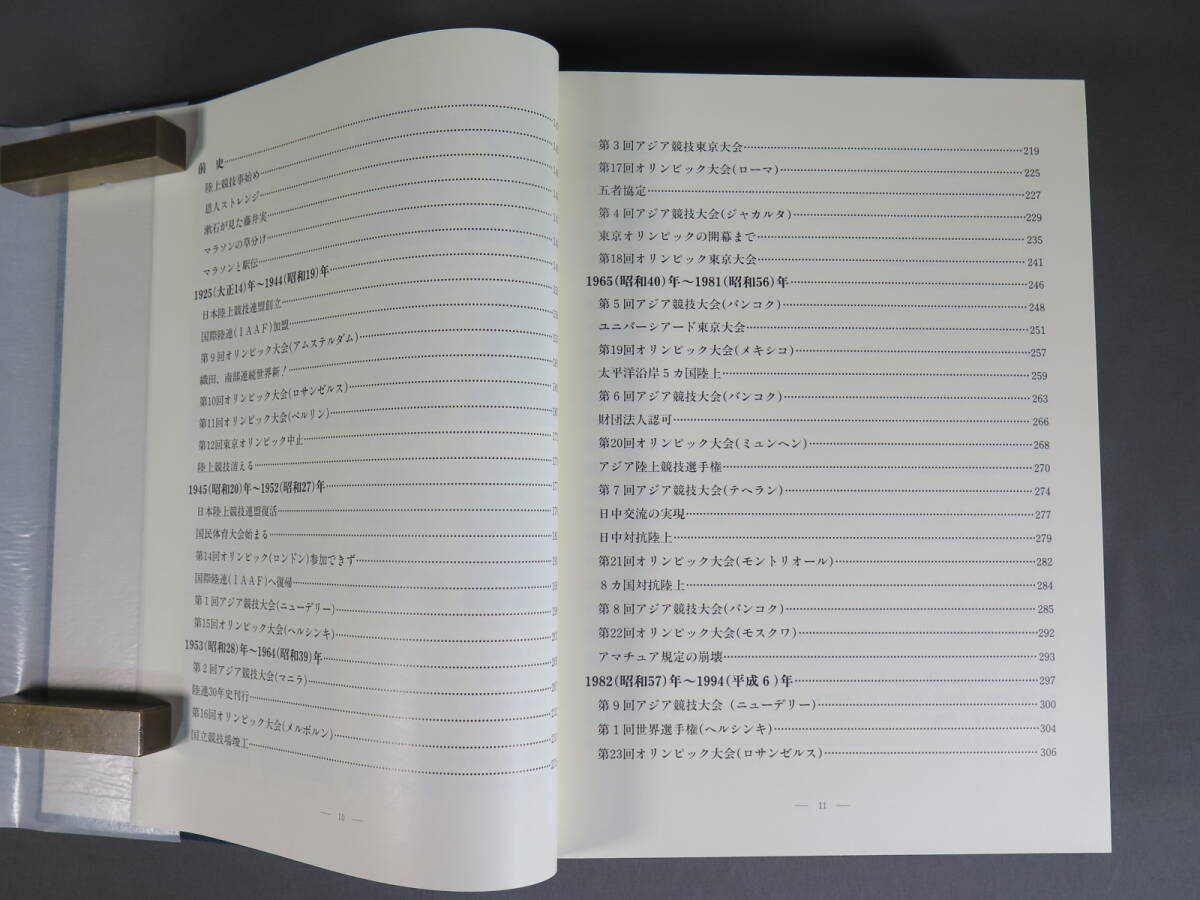 前　史
陸上競技事始め
恩人ストレンジ
漱石が見た藤井実
マラソンの草分け
マラソンと駅伝
1925(大正14)年〜1944(昭和19)年
日本陸上競技連盟創立
国際陸連(IAAF)加盟
第9回オリンピック大会(アムステルダム)
織田、南部連続世界新!
第10回オリンピック大会(ロサンゼルス)
第11回オリンピック大会(ベルリン)
第12回東京オリンピック中止
陸上競技消える
1945(昭和20)年〜1952(昭和27)年
日本陸上競技連盟復活
国民体育大会始まる
第14回オリンピック(ロンドン)参加できず
国際陸連(IAAF)へ復帰
第1回アジア競技大会(ニューデリー)
第15回オリンピック大会(ヘルシンキ)
1953(昭和28)年〜1964(昭和39)年
第2回アジア競技大会(マニラ)
陸連30年史刊行
第16回オリンピック大会(メルボルン)
国立競技場竣工
— 10 —
第3回アジア競技東京大会 219
第17回オリンピック大会(ローマ) 225
五者協定 227
第4回アジア競技大会(ジャカルタ) 229
東京オリンピックの開幕まで 235
第18回オリンピック東京大会 241
1965(昭和40)年〜1981(昭和56)年 246
第5回アジア競技大会(バンコク) 248
ユニバーシアード東京大会 251
第19回オリンピック大会(メキシコ) 257
太平洋沿岸5カ国陸上 259
第6回アジア競技大会(バンコク) 263
財団法人認可 266
第20回オリンピック大会(ミュンヘン) 268
アジア陸上競技選手権 270
第7回アジア競技大会(テヘラン) 274
日中交流の実現 277
日中対抗陸上 279
第21回オリンピック大会(モントリオール) 282
8カ国対抗陸上 284
第8回アジア競技大会(バンコク) 285
第22回オリンピック大会(モスクワ) 292
アマチュア規定の崩壊 293
1982(昭和57)年〜1994(平成6)年 297
第9回アジア競技大会(ニューデリー) 300
第1回世界選手権(ヘルシンキ) 304
第23回オリンピック大会(ロサンゼルス) 306
— 11 —